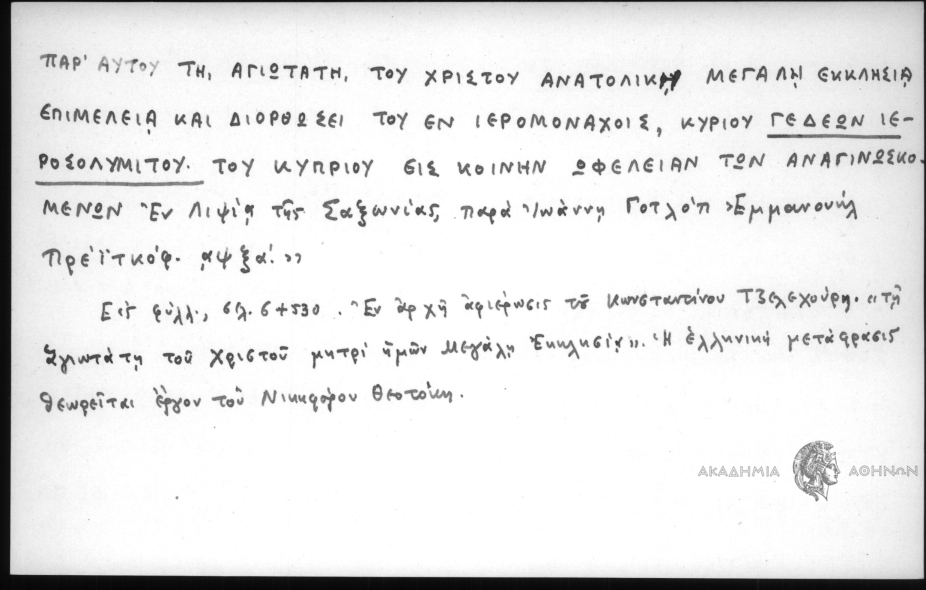 ΠΑΡ' ΑΥΤΟΥ ΤΗ, ΑΓΙΩΤΑΤΗ, ΤΟΥ ΧΡΙΣΤΟΥ ΑΝΑΤΟΛΙΚῌ ΜΕΓΑΛῌ ΕΚΚΛΗΣΙᾼ
ΕΠΙΜΕΛΕΙᾼ ΚΑΙ ΔΙΟΡΘΩΣΕΙ ΤΟΥ ΕΝ ΙΕΡΟΜΟΝΑΧΟΙΣ, ΚΥΡΙΟΥ ΓΕΔΕΩΝ ΙΕ-
ΡΟΣΟΛΥΜΙΤΟΥ. ΤΟΥ ΚΥΠΡΙΟΥ ΕΙΣ ΚΟΙΝΗΝ ΩΦΕΛΕΙΑΝ ΤΩΝ ΑΝΑΓΙΝΩΣΚΟ-
ΜΕΝΩΝ Ἐν Λιψίᾳ τῆς Σαξωνίας, παρά Ἰωάννῃ Γοτλόπ Ἐμμανουήλ
Πρέϊτκόφ. ͵αψξά.»
Εἰς φύλλ., σελ. 6+530. Ἐν ἀρχῇ ἀφιέρωσις τοῦ Κωνσταντίνου Τζελεχούρη. «τῇ
ἁγιωτάτῃ τοῦ Χριστοῦ μητρί ἡμῶν Μεγάλῃ Ἐκκλησίᾳ». Ἡ ἑλληνική μετάφρασις
θεωρεῖται ἔργον τοῦ Νικηφόρου Θεοτόκη.
ΑΚΑΔΗΜΙΑ ΑΘΗΝΩΝ